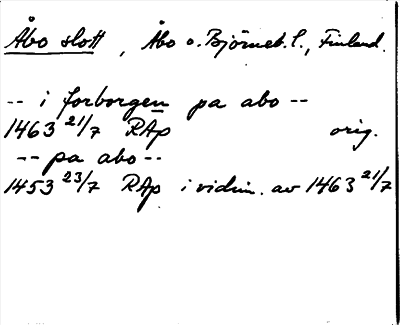 Åbo slott, Åbo o. Björneb. l., Finland.
-- i forborgen pa abo --
1463 21/7 RAp orig.
-- pa abo --
1453 23/7 RAp i vidim. av 1463 21/7